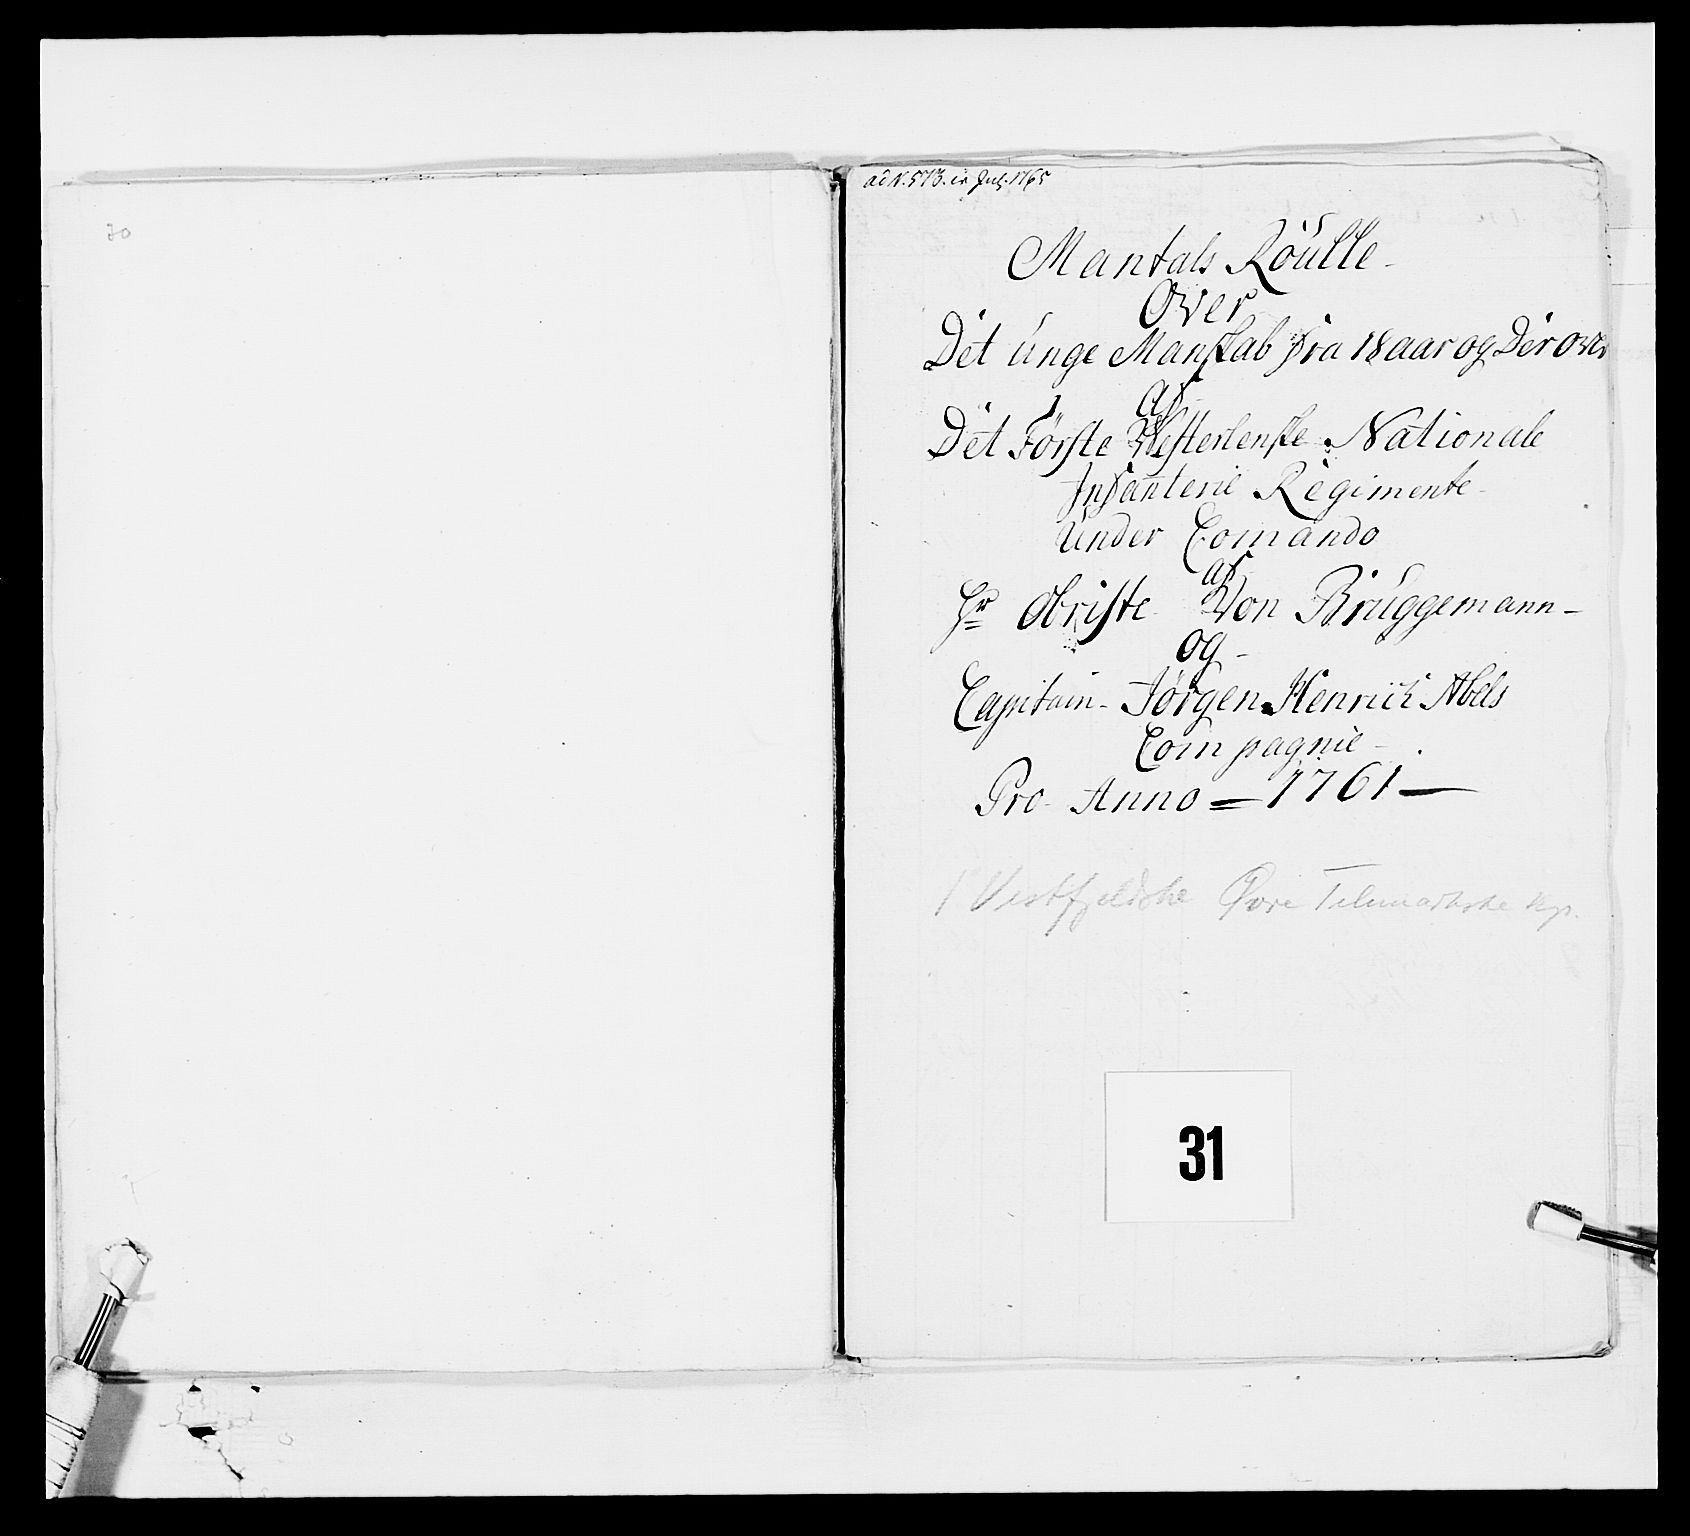 30
ad N. 573. in July. 1765
Mantals Röulle -
Over
Det unge Manskab fra 18 aar og Der over
af
Det Første Westerlenske Nationale
Infanterie Regimente -
Under Comando
af
Hr Obriste Von Brüggemann -
og -
Capitain - Jørgen Henrich Abels
Compagnie -
Pro - Anno = 1761 -
1 Vestfjeldske Øvre Telemarkske Kp.
31